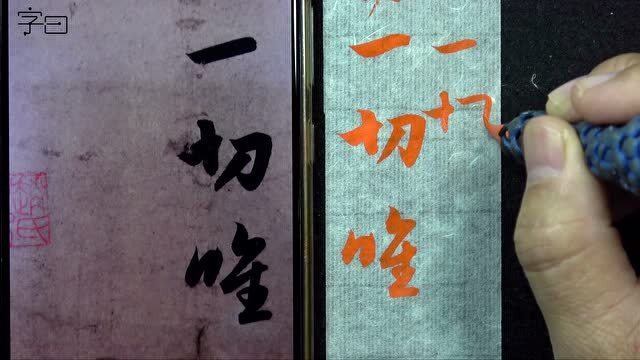 字曰
一切唯
一切唯
一切